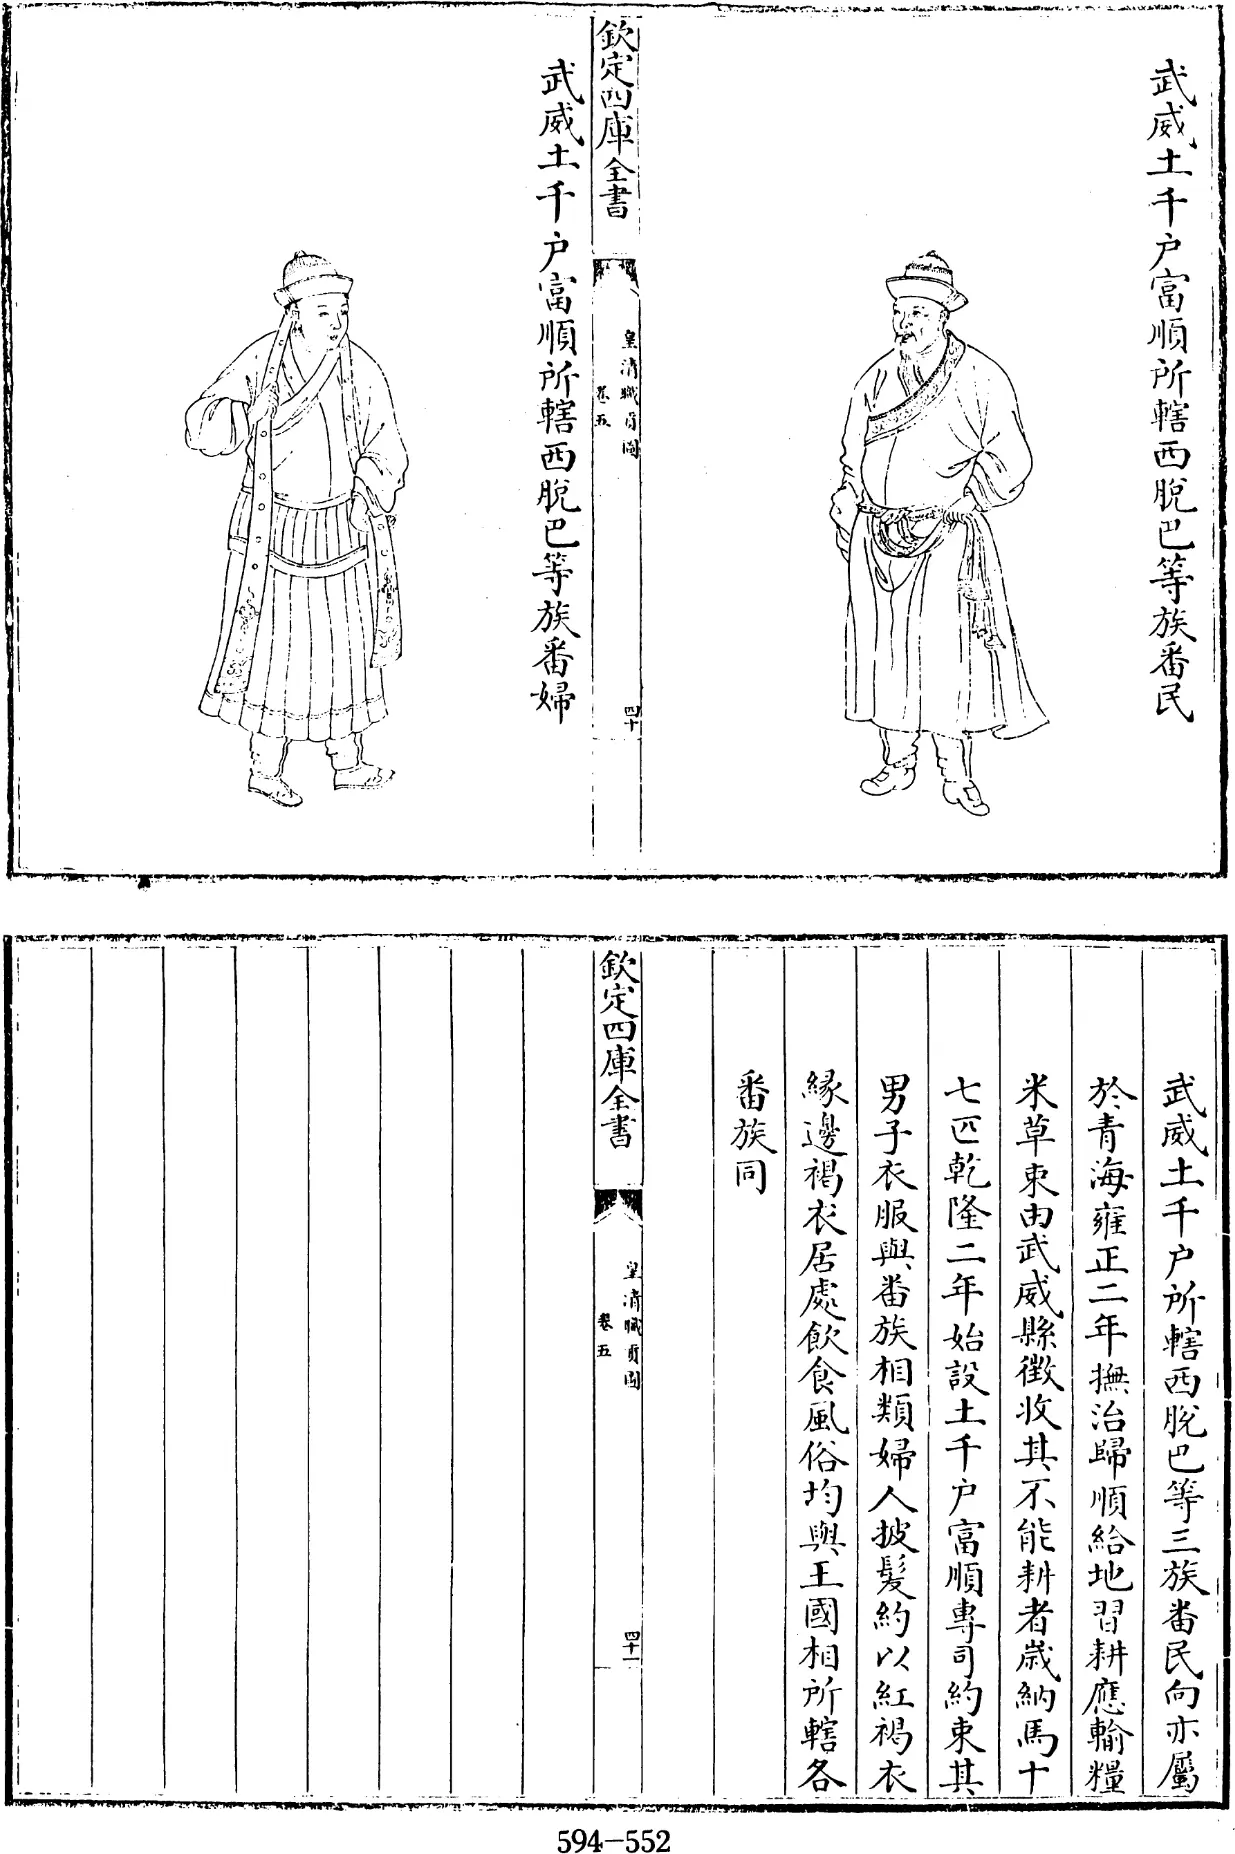 武威土千户富順所轄西脫巴等族番民
欽定四庫全書
皇清職貢圖
卷五
四十
武威土千户富順所轄西脫巴等族番婦
武威土千户所轄西脫巴等三族番民向亦屬
於青海雍正二年撫治歸順給地習耕應輸糧
米草束由武威縣徵收其不能耕者歲納馬十
七匹乾隆二年始設土千户富順專司約束其
男子衣服與番族相類婦人披髮約以紅褐衣
緣邊褐衣居處飲食風俗均與王國相所轄各
番族同
欽定四庫全書
皇清職貢圖
卷五
四十一
594—552